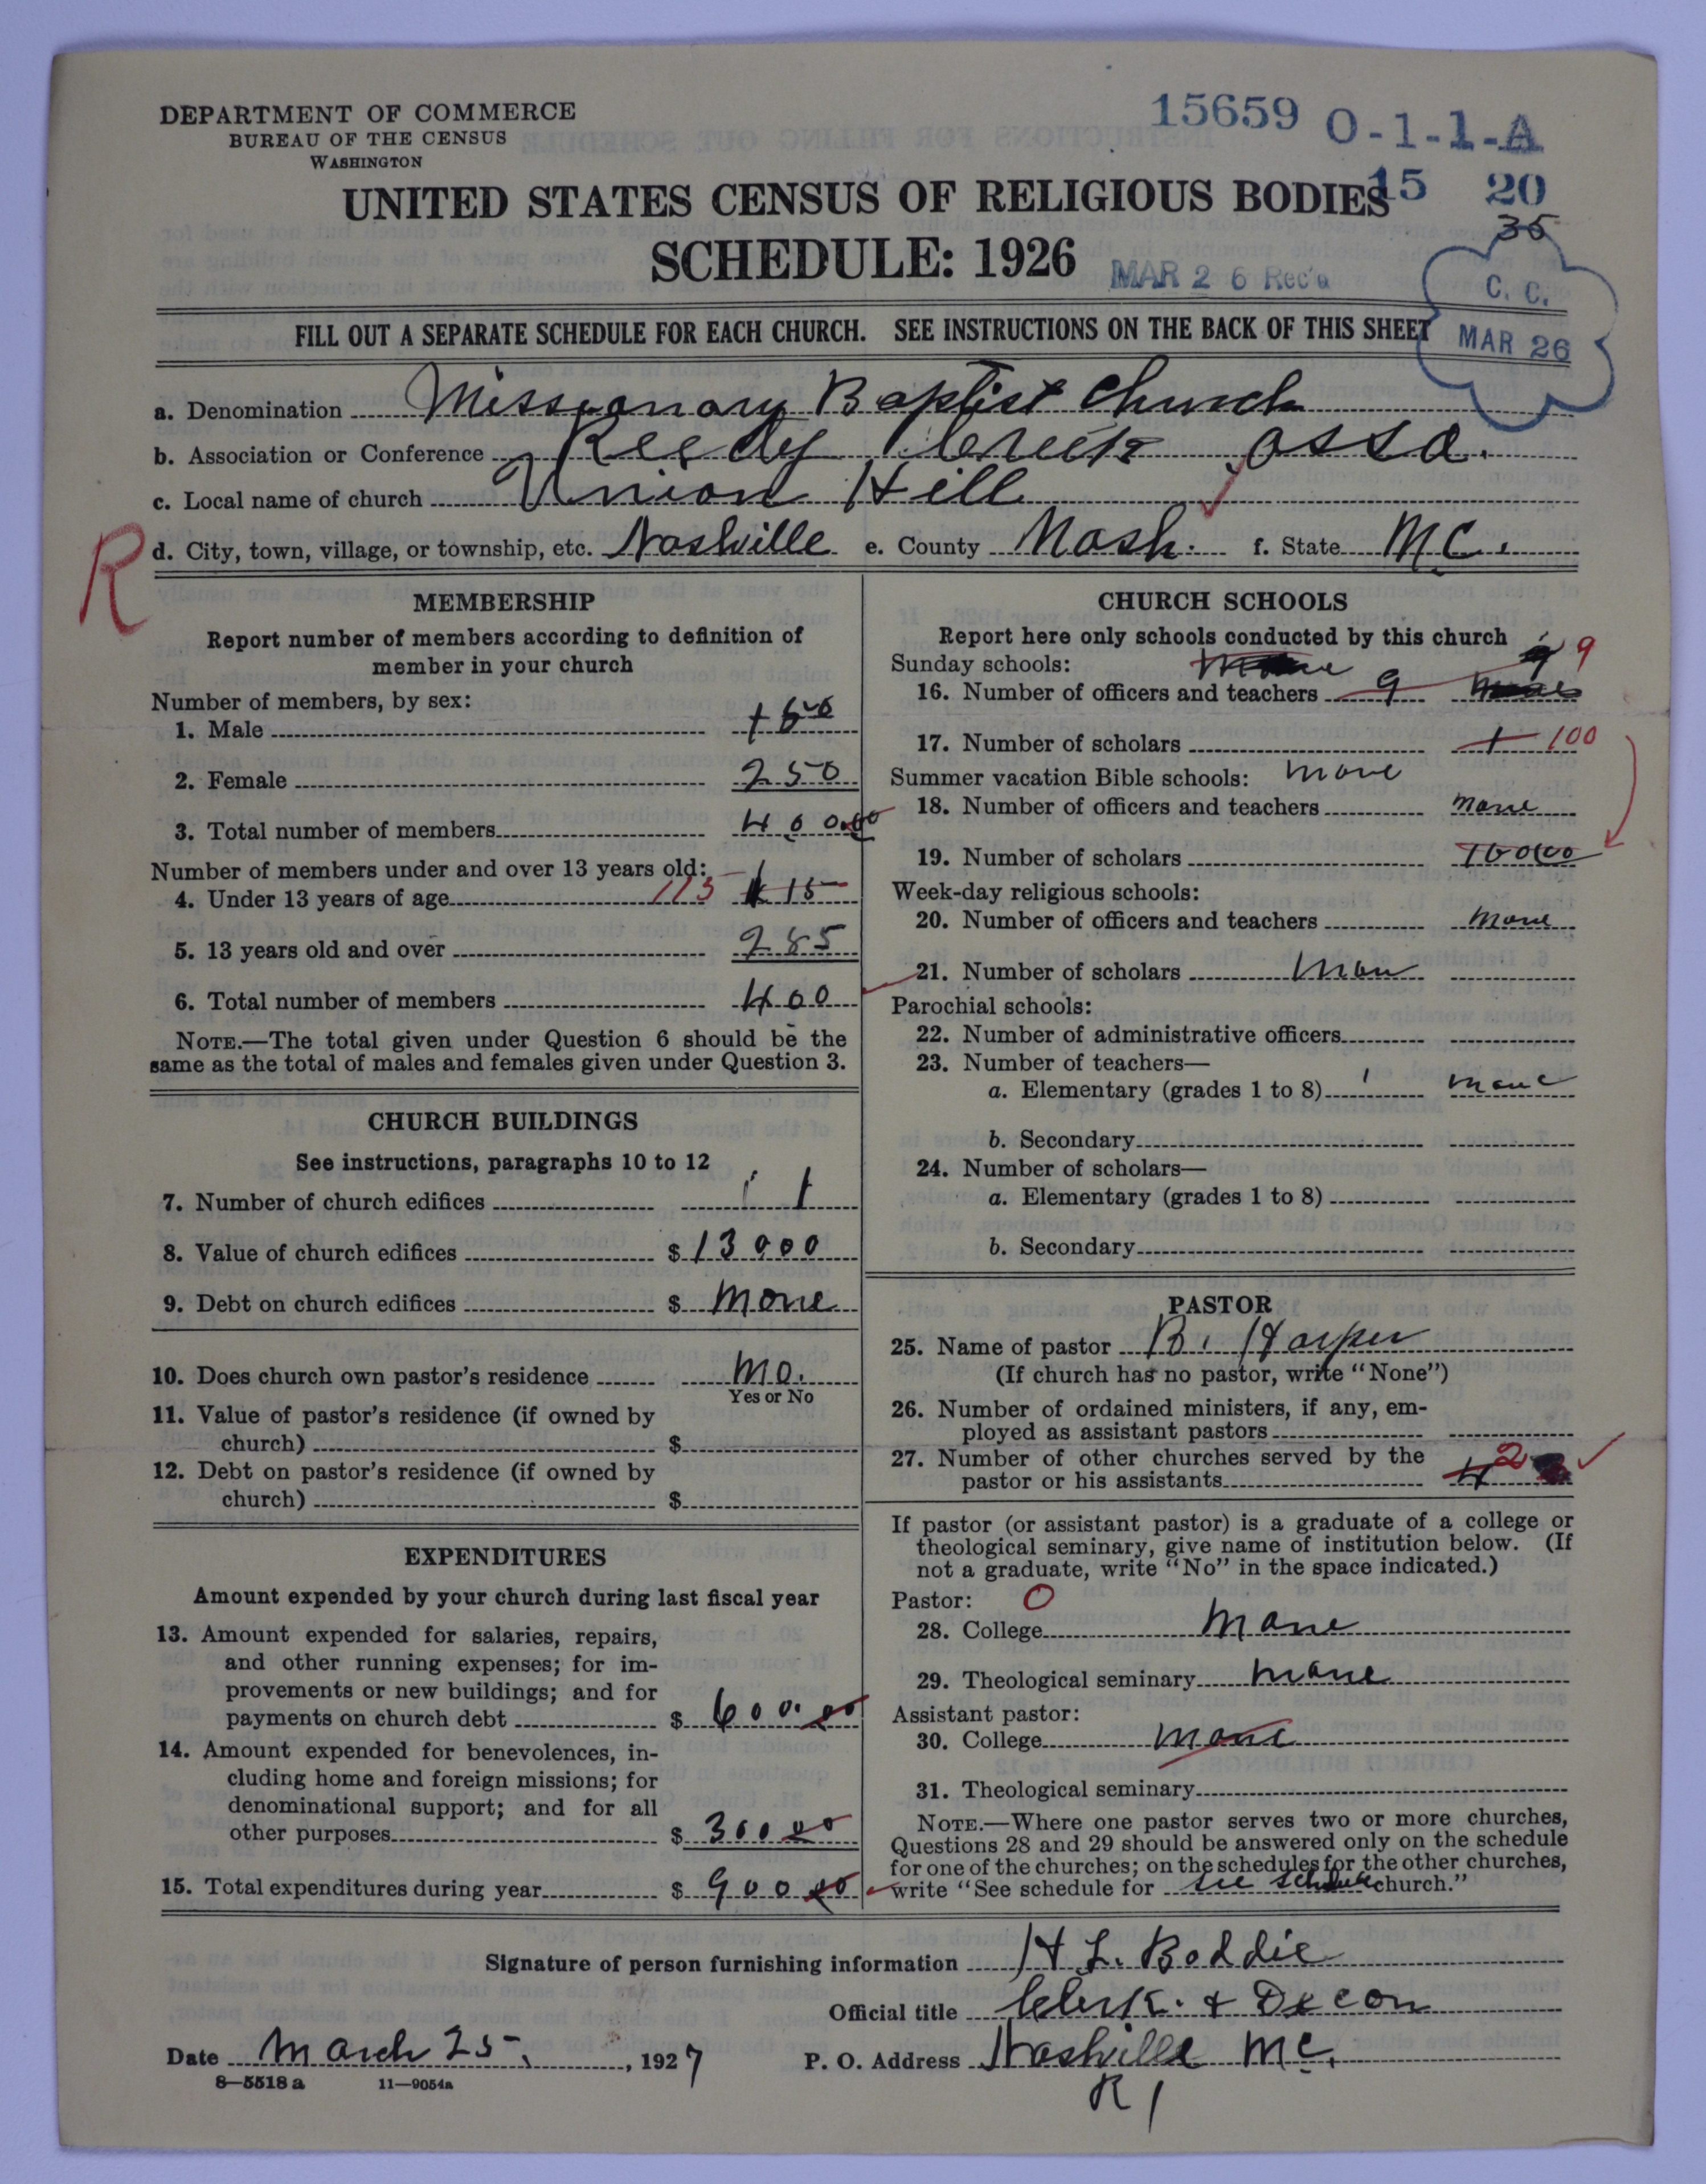 DEPARTMENT OF COMMERCE
BUREAU OF THE CENSUS
WASHINGTON
15659 O-1-1-A
UNITED STATES CENSUS OF RELIGIOUS BODIES
15 20
35
SCHEDULE: 1926
MAR 26 Rec'd
C. C.
MAR 26
FILL OUT A SEPARATE SCHEDULE FOR EACH CHURCH. SEE INSTRUCTIONS ON THE BACK OF THIS SHEET
a. Denomination Missionary Baptist Church
b. Association or Conference Reedy Creek Asso.
c. Local name of church Union Hill
R
d. City, town, village, or township, etc. Nashville e. County Nash. f. State N.C.
MEMBERSHIP
Report number of members according to definition of
member in your church
Number of members, by sex:
1. Male 150
2. Female 250
3. Total number of members 400.00
Number of members under and over 13 years old:
4. Under 13 years of age 115 115
5. 13 years old and over 285
6. Total number of members 400
NOTE.—The total given under Question 6 should be the
same as the total of males and females given under Question 3.
CHURCH BUILDINGS
See instructions, paragraphs 10 to 12
7. Number of church edifices 1
8. Value of church edifices $ 13000
9. Debt on church edifices $ none
10. Does church own pastor's residence no.
Yes or No
11. Value of pastor's residence (if owned by
church) $
12. Debt on pastor's residence (if owned by
church) $
EXPENDITURES
Amount expended by your church during last fiscal year
13. Amount expended for salaries, repairs,
and other running expenses; for im-
provements or new buildings; and for
payments on church debt $ 600.00
14. Amount expended for benevolences, in-
cluding home and foreign missions; for
denominational support; and for all
other purposes $ 300.00
15. Total expenditures during year $ 900.00
CHURCH SCHOOLS
Report here only schools conducted by this church
Sunday schools: 9 9
16. Number of officers and teachers 9
17. Number of scholars 1 100
Summer vacation Bible schools: none
18. Number of officers and teachers none
19. Number of scholars 100.00
Week-day religious schools:
20. Number of officers and teachers none
21. Number of scholars non
Parochial schools:
22. Number of administrative officers
23. Number of teachers—
a. Elementary (grades 1 to 8) none
b. Secondary
24. Number of scholars—
a. Elementary (grades 1 to 8)
b. Secondary
PASTOR
25. Name of pastor B. Harper
(If church has no pastor, write "None")
26. Number of ordained ministers, if any, em-
ployed as assistant pastors
27. Number of other churches served by the
pastor or his assistants 4 2
If pastor (or assistant pastor) is a graduate of a college or
theological seminary, give name of institution below. (If
not a graduate, write "No" in the space indicated.)
Pastor: O
28. College none
29. Theological seminary none
Assistant pastor:
30. College none
31. Theological seminary
NOTE.—Where one pastor serves two or more churches,
Questions 28 and 29 should be answered only on the schedule
for one of the churches; on the schedules for the other churches,
write "See schedule for see schedule church."
Signature of person furnishing information H L. Boddie
Official title Clerk. & Decon
Date March 25, 1927 P. O. Address Nashville N.C.
R 1
8—5518 a 11—9054a